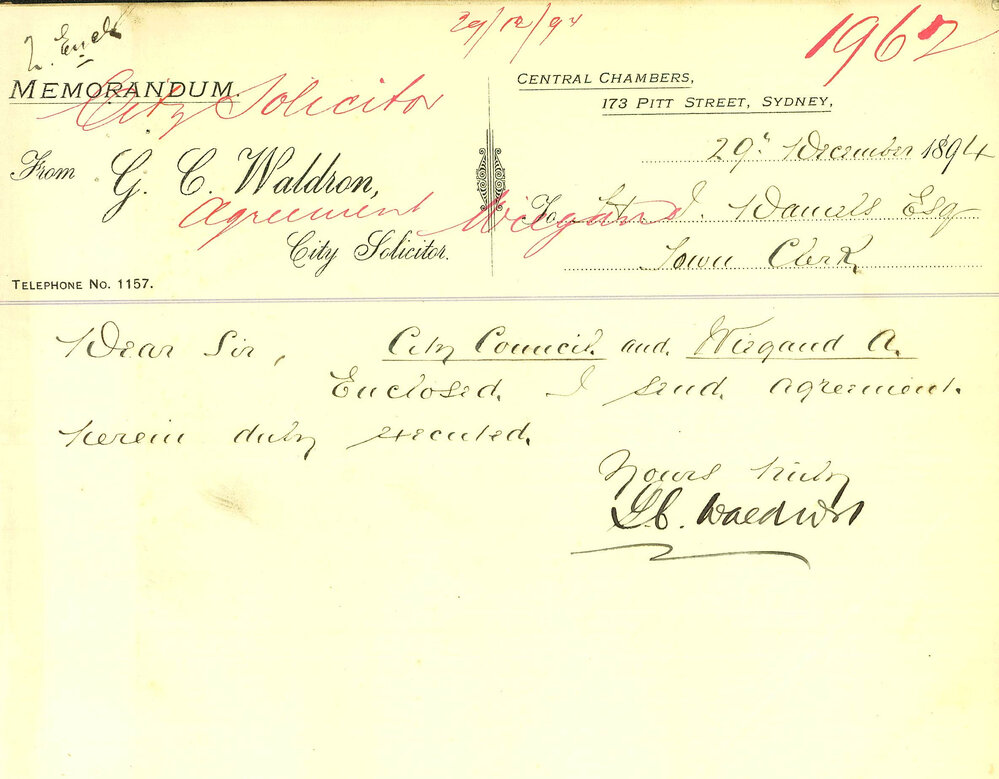 29/12/94
1967
Encls
MEMORANDUM.
City Solicitor
CENTRAL CHAMBERS,
173 PITT STREET, SYDNEY,
29th December 1894
From G. C. Waldron,
City Solicitor.
Agreement Wiegand
To H. J. Daniels Esq
Town Clerk
TELEPHONE NO. 1157.
Dear Sir, City Council and Wiegand A.
Enclosed I send agreement
herein duly executed.
Yours truly
G.C. Waldron